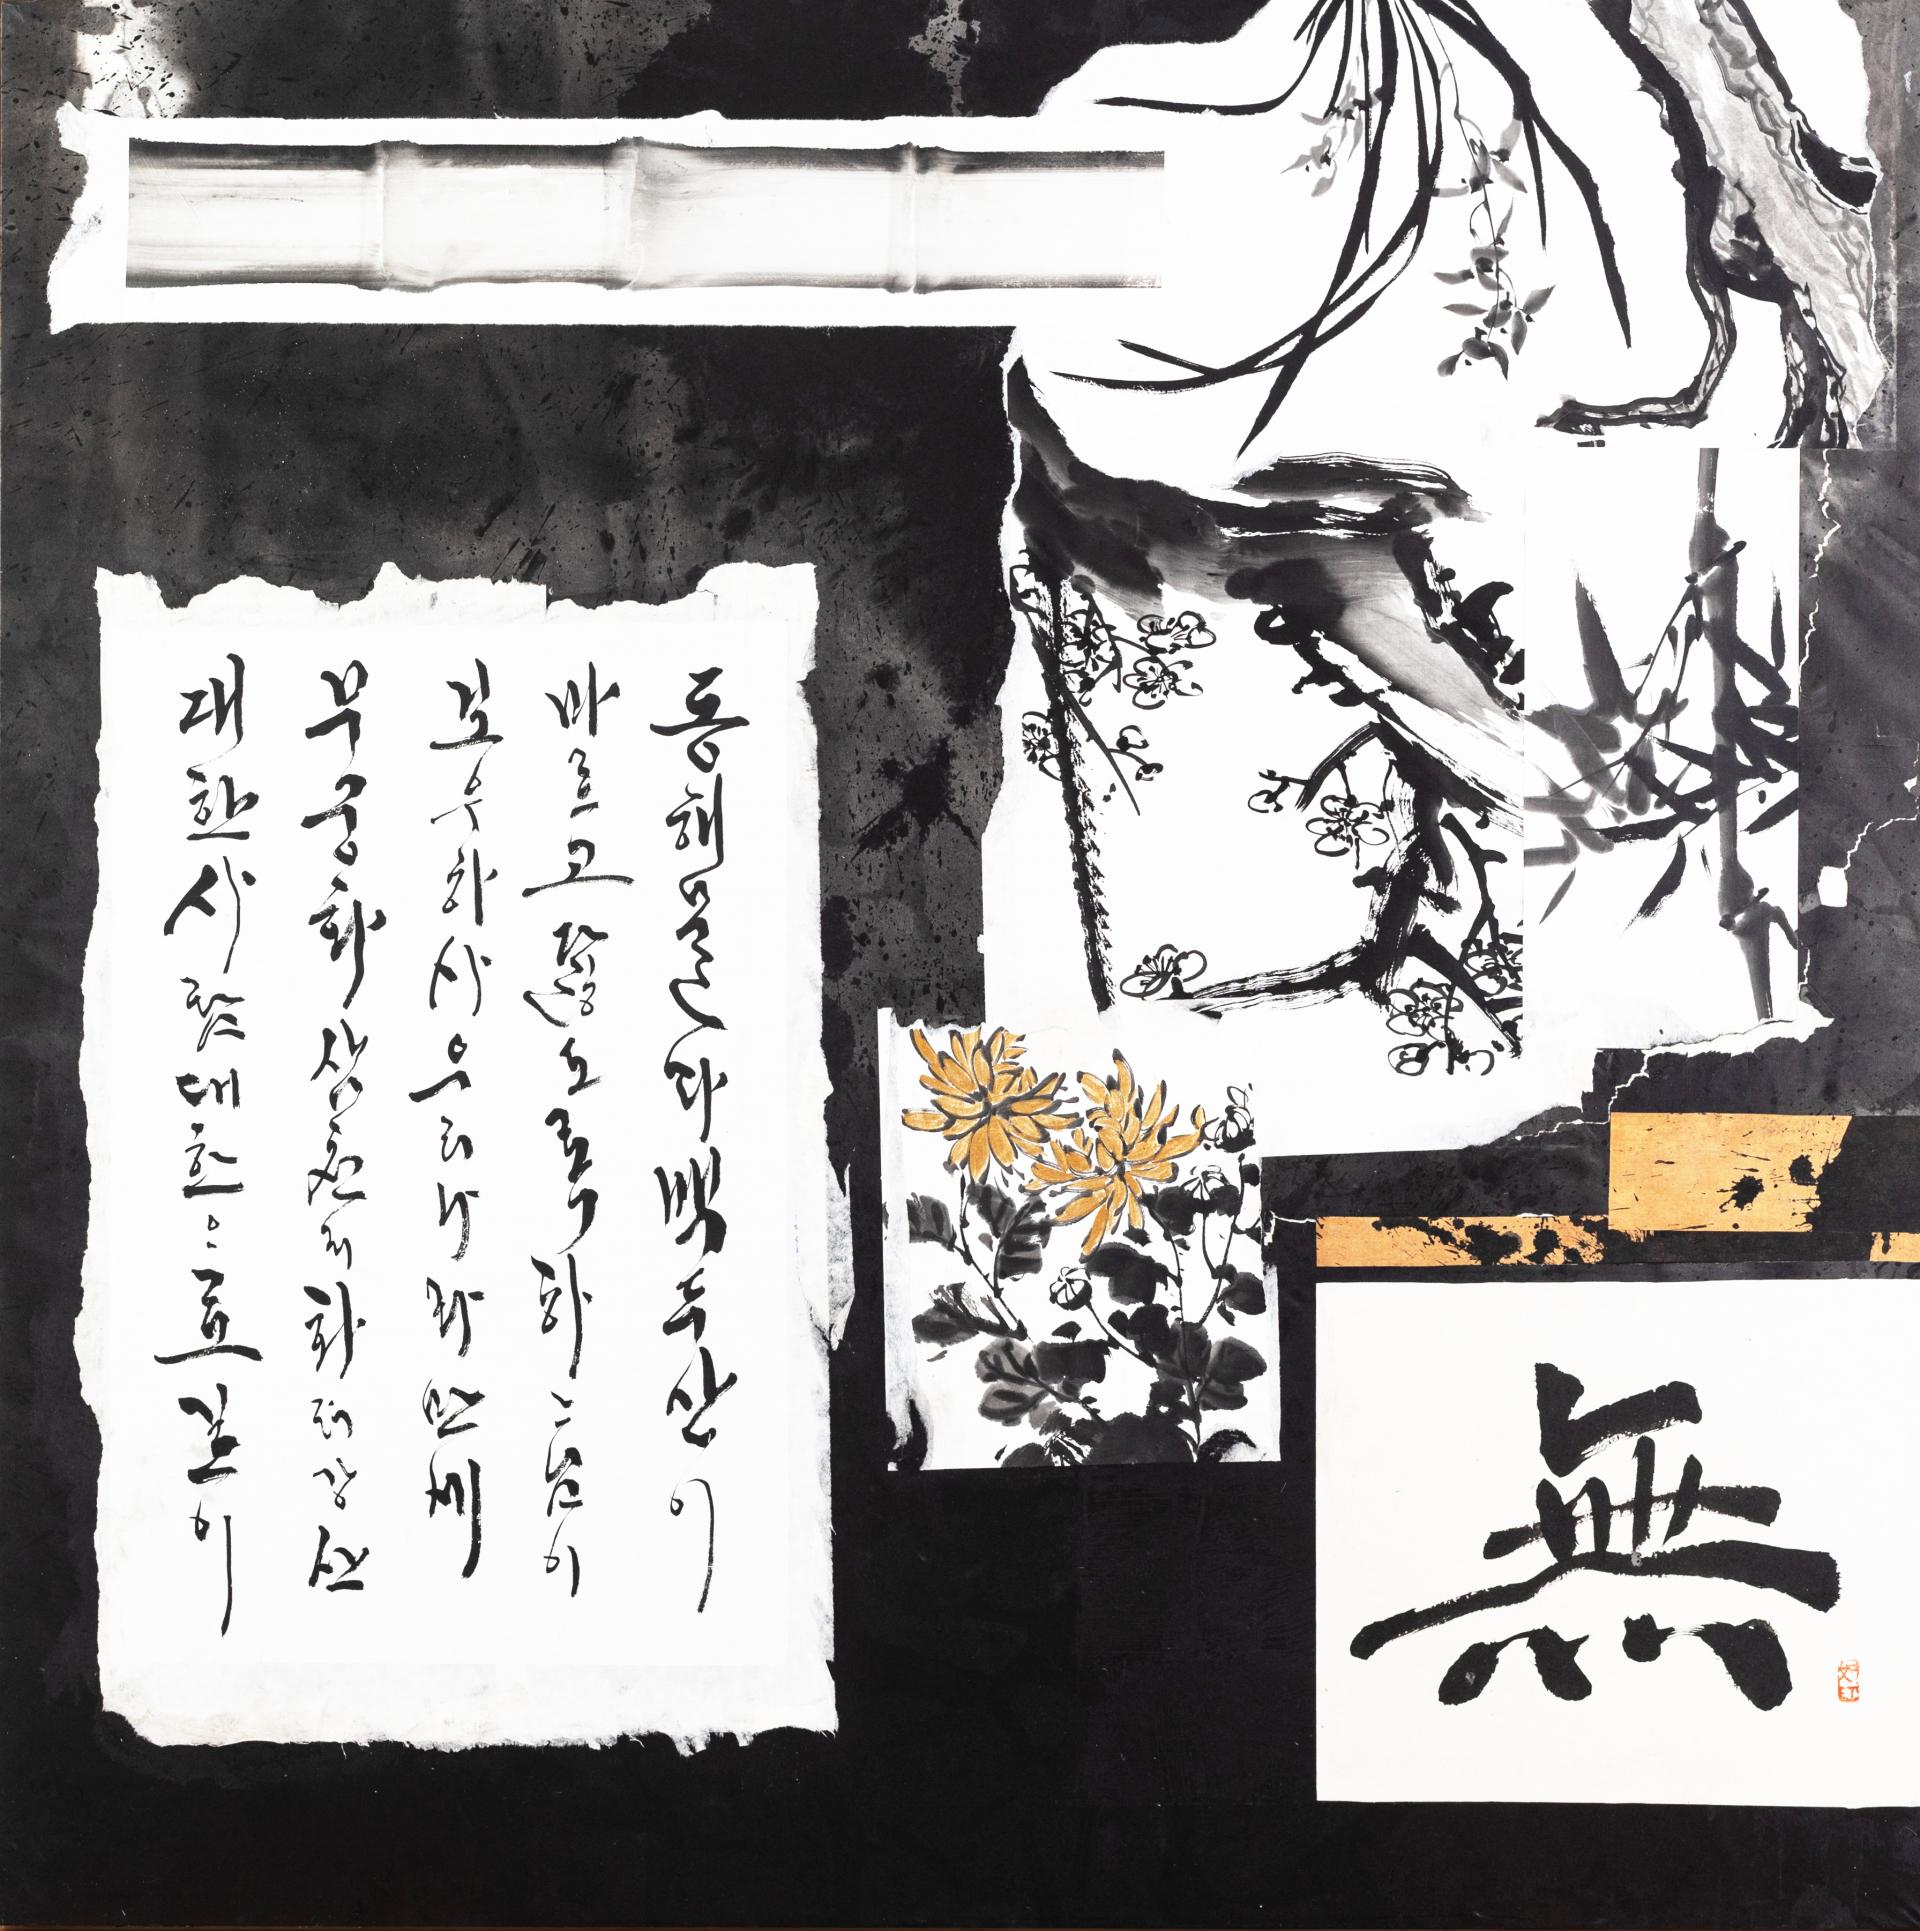 동해물과백두산이
마르고닳도록하느님이
보우하사우리나라만세
무궁화삼천리화려강산
대한사람대한으로길이
無